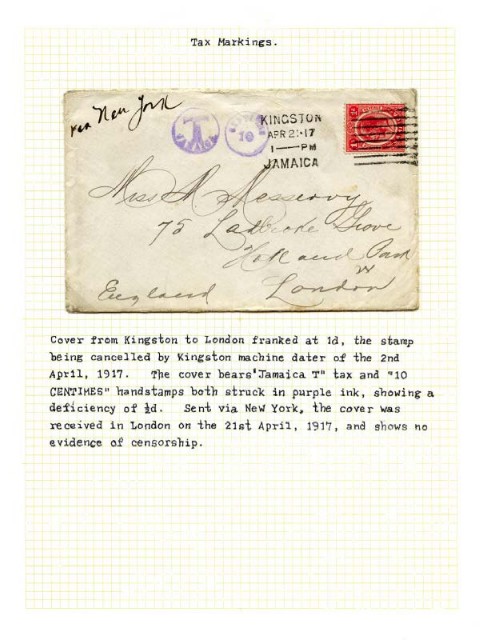 Tax Markings.
via New York
T
JAMAICA
CENTIMES
10
KINGSTON
APR 21·17
1 — PM
JAMAICA
Miss A Messervy
75 Ladbroke Grove
Holland Park
W
London
England
Cover from Kingston to London franked at 1d, the stamp
being cancelled by Kingston machine dater of the 2nd
April, 1917. The cover bears"Jamaica T" tax and "10
CENTIMES" handstamps both struck in purple ink, showing a
deficiency of ½d. Sent via New York, the cover was
received in London on the 21st April, 1917, and shows no
evidence of censorship.